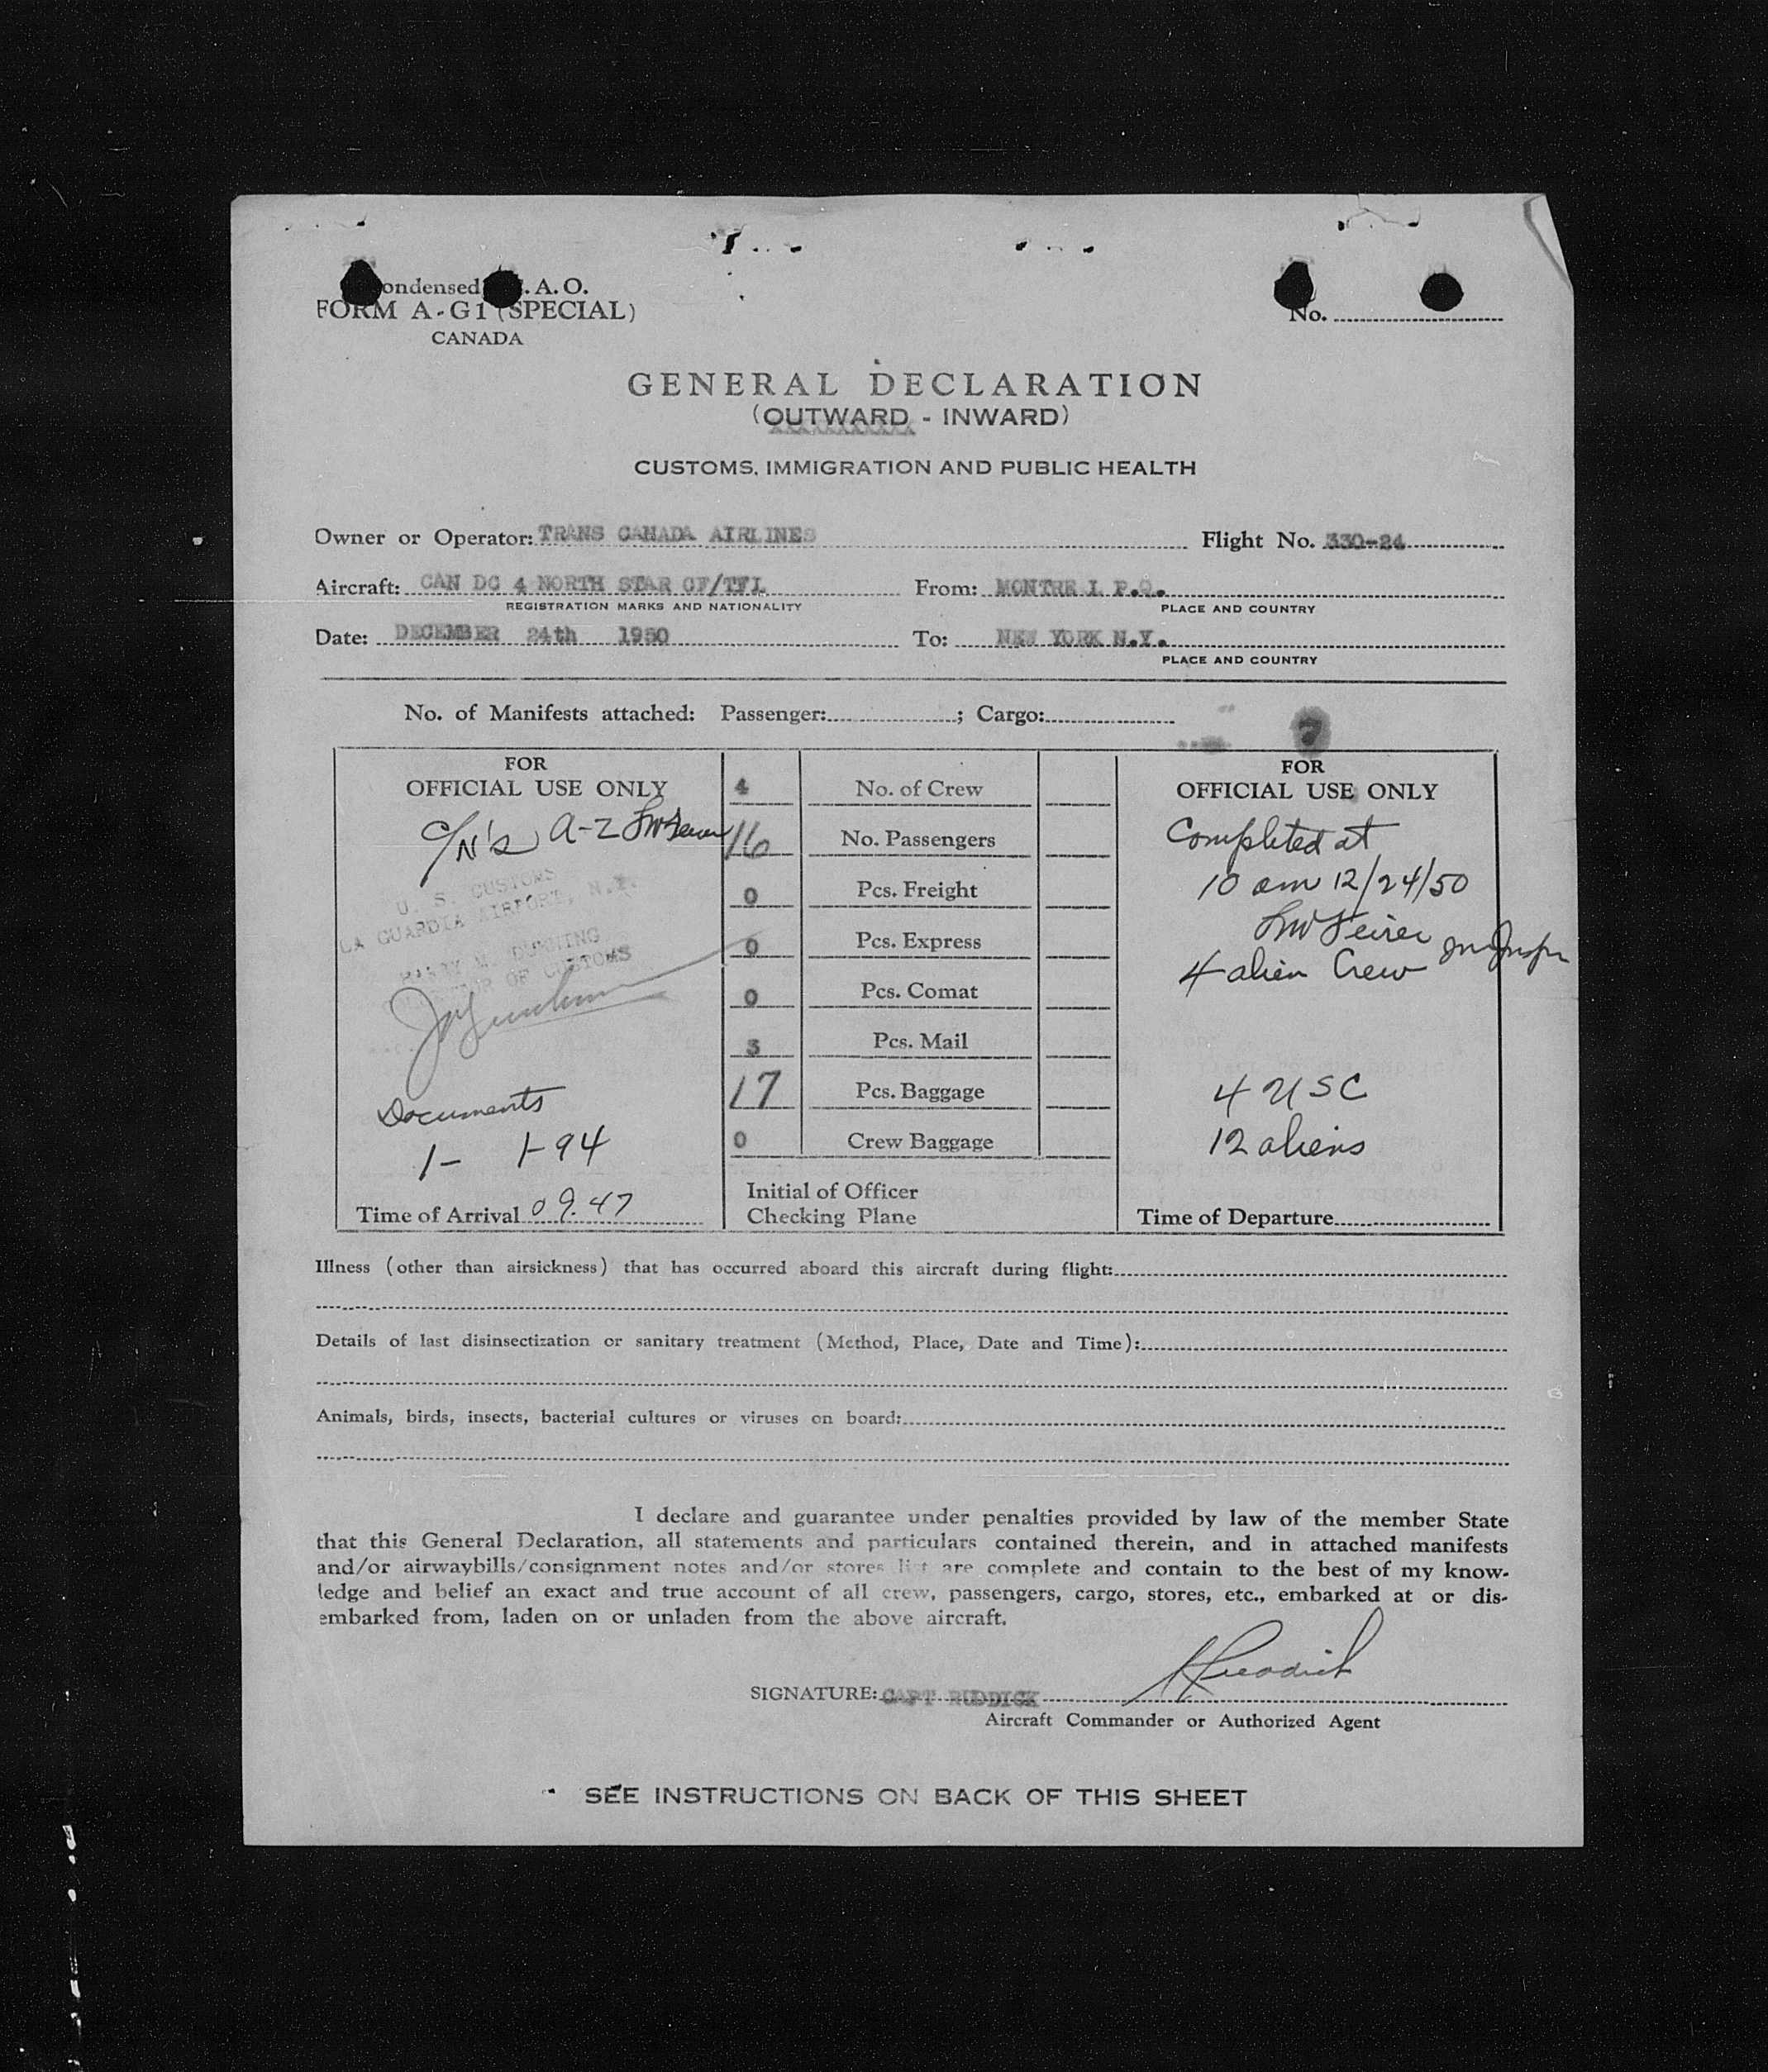 Condensed I.C.A.O.
FORM A-G1 (SPECIAL)
CANADA
No.
GENERAL DECLARATION
(OUTWARD - INWARD)
CUSTOMS, IMMIGRATION AND PUBLIC HEALTH
Owner or Operator: TRANS CANADA AIRLINES Flight No. 330-24
Aircraft: CAN DC 4 NORTH STAR CF/TFL From: MONTRE L P.Q.
REGISTRATION MARKS AND NATIONALITY PLACE AND COUNTRY
Date: DECEMBER 24th 1950 To: NEW YORK N.Y.
PLACE AND COUNTRY
No. of Manifests attached: Passenger: ; Cargo:
7
FOR
OFFICIAL USE ONLY
C/N's A-Z
U. S. CUSTOMS
LA GUARDIA AIRPORT, N.Y.
HARRY M. DURNING
OF CUSTOMS
Documents
1- 1-94
Time of Arrival 09.47
4 No. of Crew
16 No. Passengers
0 Pcs. Freight
0 Pcs. Express
0 Pcs. Comat
3 Pcs. Mail
17 Pcs. Baggage
0 Crew Baggage
Initial of Officer
Checking Plane
FOR
OFFICIAL USE ONLY
Completed at
10 am 12/24/50
4 alien Crew
4 USC
12 aliens
Time of Departure
Illness (other than airsickness) that has occurred aboard this aircraft during flight:
Details of last disinsectization or sanitary treatment (Method, Place, Date and Time):
Animals, birds, insects, bacterial cultures or viruses on board:
I declare and guarantee under penalties provided by law of the member State
that this General Declaration, all statements and particulars contained therein, and in attached manifests
and/or airwaybills/consignment notes and/or stores list are complete and contain to the best of my know-
ledge and belief an exact and true account of all crew, passengers, cargo, stores, etc., embarked at or dis-
embarked from, laden on or unladen from the above aircraft.
SIGNATURE: CAPT RUDDICK
Aircraft Commander or Authorized Agent
SEE INSTRUCTIONS ON BACK OF THIS SHEET